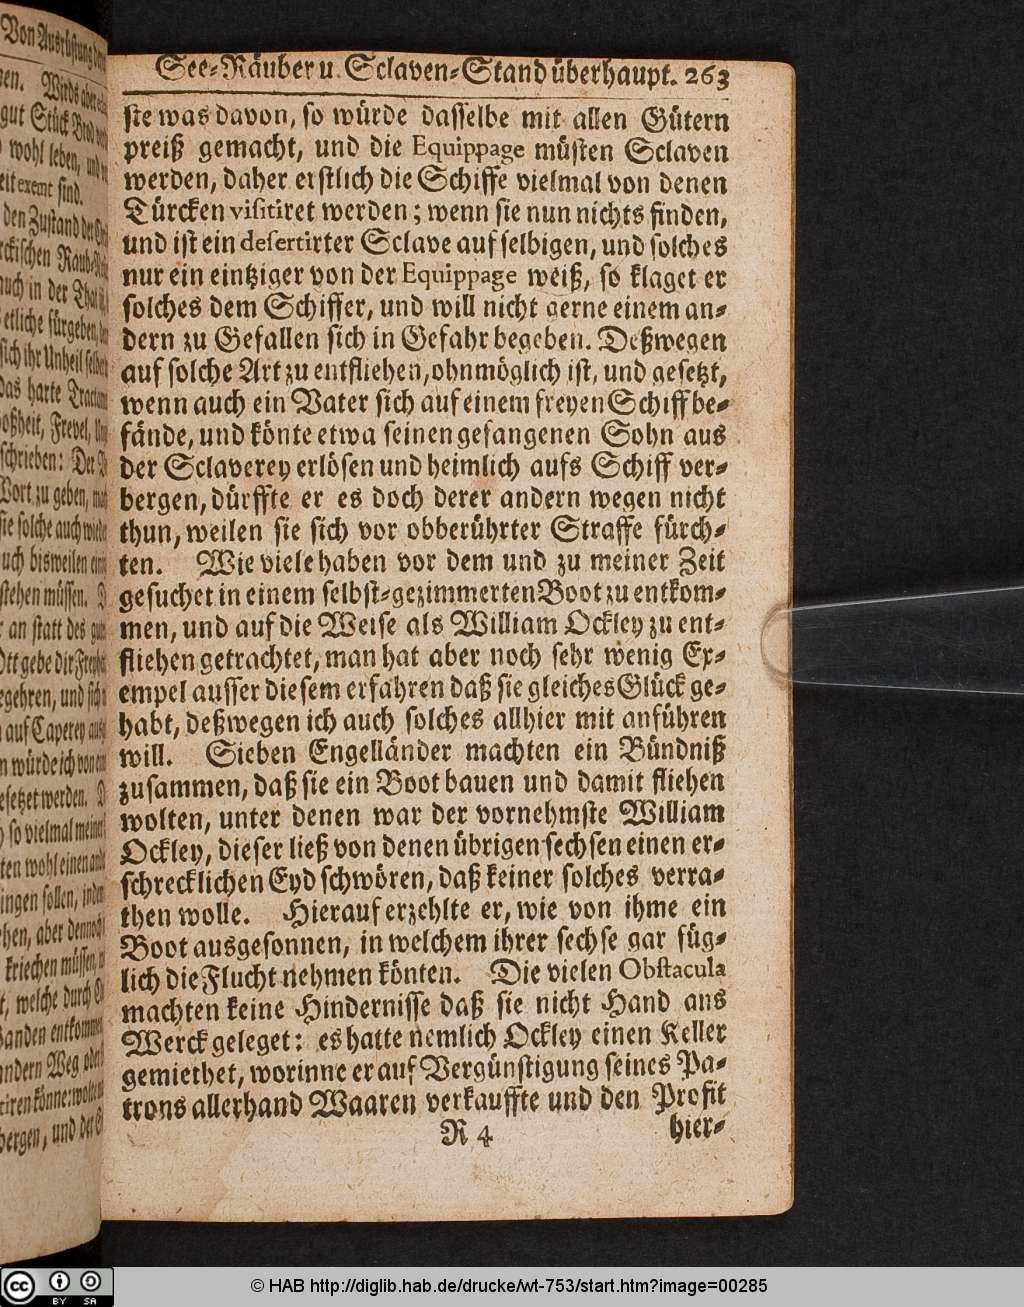 See-Räuber u. Sclaven-Stand überhaupt. 263
ste was davon, so würde dasselbe mit allen Gütern
preiß gemacht, und die Equippage müsten Sclaven
werden, daher erstlich die Schiffe vielmal von denen
Türcken visitiret werden; wenn sie nun nichts finden,
und ist ein desertirter Sclave auf selbigen, und solches
nur ein eintziger von der Equippage weiß, so klaget er
solches dem Schiffer, und will nicht gerne einem an-
dern zu Gefallen sich in Gefahr begeben. Deßwegen
auf solche Art zu entfliehen, ohnmöglich ist, und gesetzt,
wenn auch ein Vater sich auf einem freyen Schiff be-
fände, und könte etwa seinen gefangenen Sohn aus
der Sclaverey erlösen und heimlich aufs Schiff ver-
bergen, dürffte er es doch derer andern wegen nicht
thun, weilen sie sich vor obberührter Straffe fürch-
ten. Wie viele haben vor dem und zu meiner Zeit
gesuchet in einem selbst-gezimmerten Boot zu entkom-
men, und auf die Weise als William Ockley zu ent-
fliehen getrachtet, man hat aber noch sehr wenig Ex-
empel ausser diesem erfahren daß sie gleiches Glück ge-
habt, deßwegen ich auch solches allhier mit anführen
will. Sieben Engelländer machten ein Bündniß
zusammen, daß sie ein Boot bauen und damit fliehen
wolten, unter denen war der vornehmste William
Ockley, dieser ließ von denen übrigen sechsen einen er-
schrecklichen Eyd schwören, daß keiner solches verra-
then wolle. Hierauf erzehlte er, wie von ihme ein
Boot ausgesonnen, in welchem ihrer sechse gar füg-
lich die Flucht nehmen könten. Die vielen Obstacula
machten keine Hindernisse daß sie nicht Hand ans
Werck geleget: es hatte nemlich Ockley einen Keller
gemiethet, worinne er auf Vergünstigung seines Pa-
trons allerhand Waaren verkauffte und den Profit
R 4 hier-
© HAB http://diglib.hab.de/drucke/wt-753/start.htm?image=00285
cc BY SA